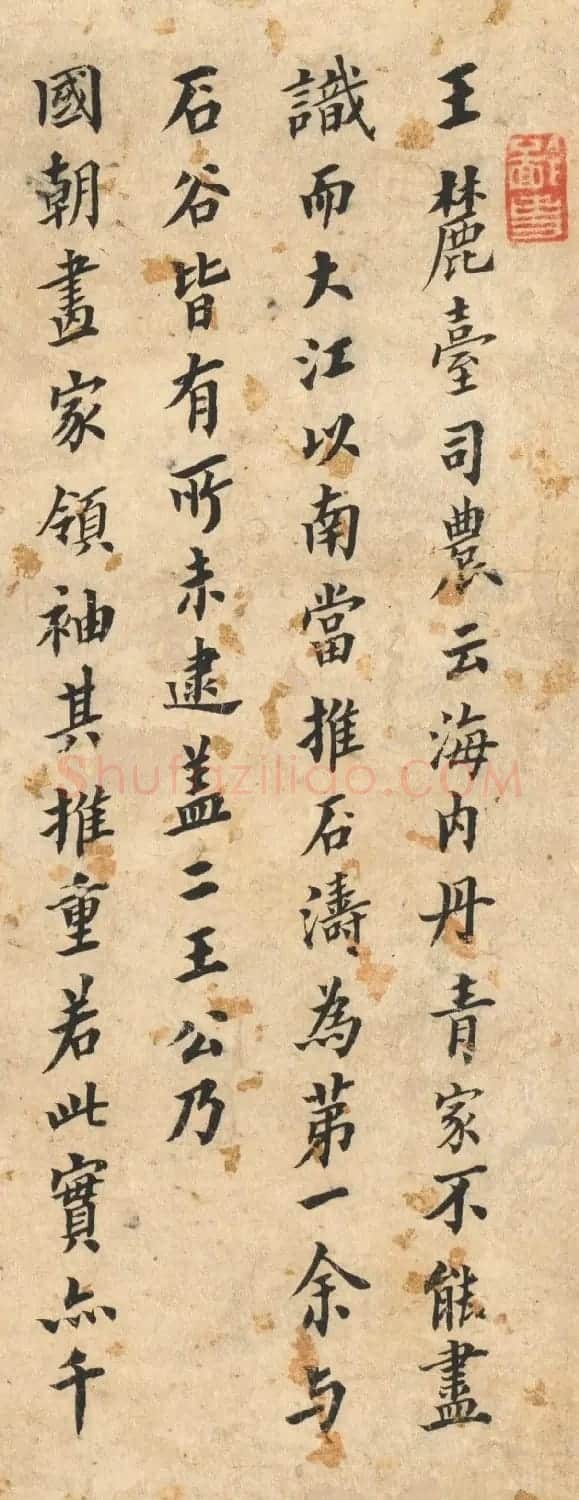 王麓臺司農云海内丹青家不能盡
識而大江以南當推石濤為第一余与
石谷皆有所未逮盖二王公乃
國朝畫家領袖其推重若此實亦千
Shufaziliao.COM